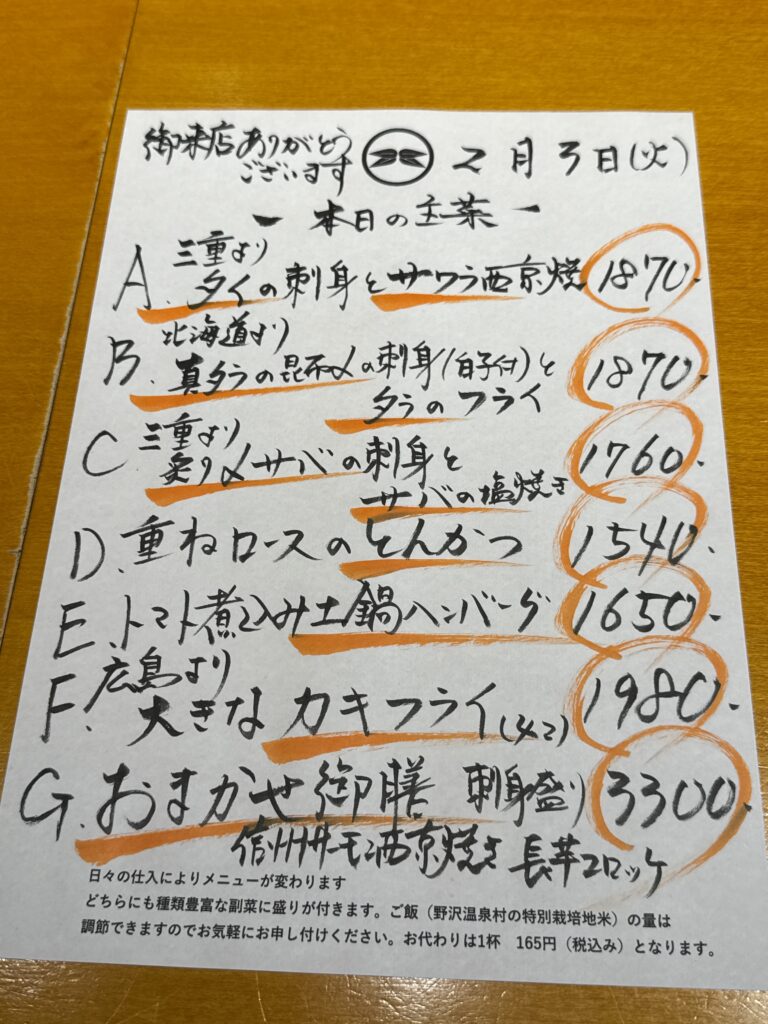 御来店ありがとう
ございます
2月3日(火)
ー 本日の主菜 ー
A. 三重より
タイの刺身とサワラ西京焼 1870.
B. 北海道より
真タラの昆布〆の刺身(白子付)と
タラのフライ 1870.
C 三重より
炙り〆サバの刺身と
サバの塩焼き 1760.
D. 重ねロースのとんかつ 1540.
E. トマト煮込み土鍋ハンバーグ 1650.
F. 広島より
大きなカキフライ 1980.
G. おまかせ御膳 刺身盛り 3300.
信州サーモン西京焼き 長芋コロッケ
日々の仕入によりメニューが変わります
どちらにも種類豊富な副菜に盛りが付きます。ご飯（野沢温泉村の特別栽培地米）の量は
調節できますのでお気軽にお申し付けください。お代わりは1杯 165円（税込み）となります。